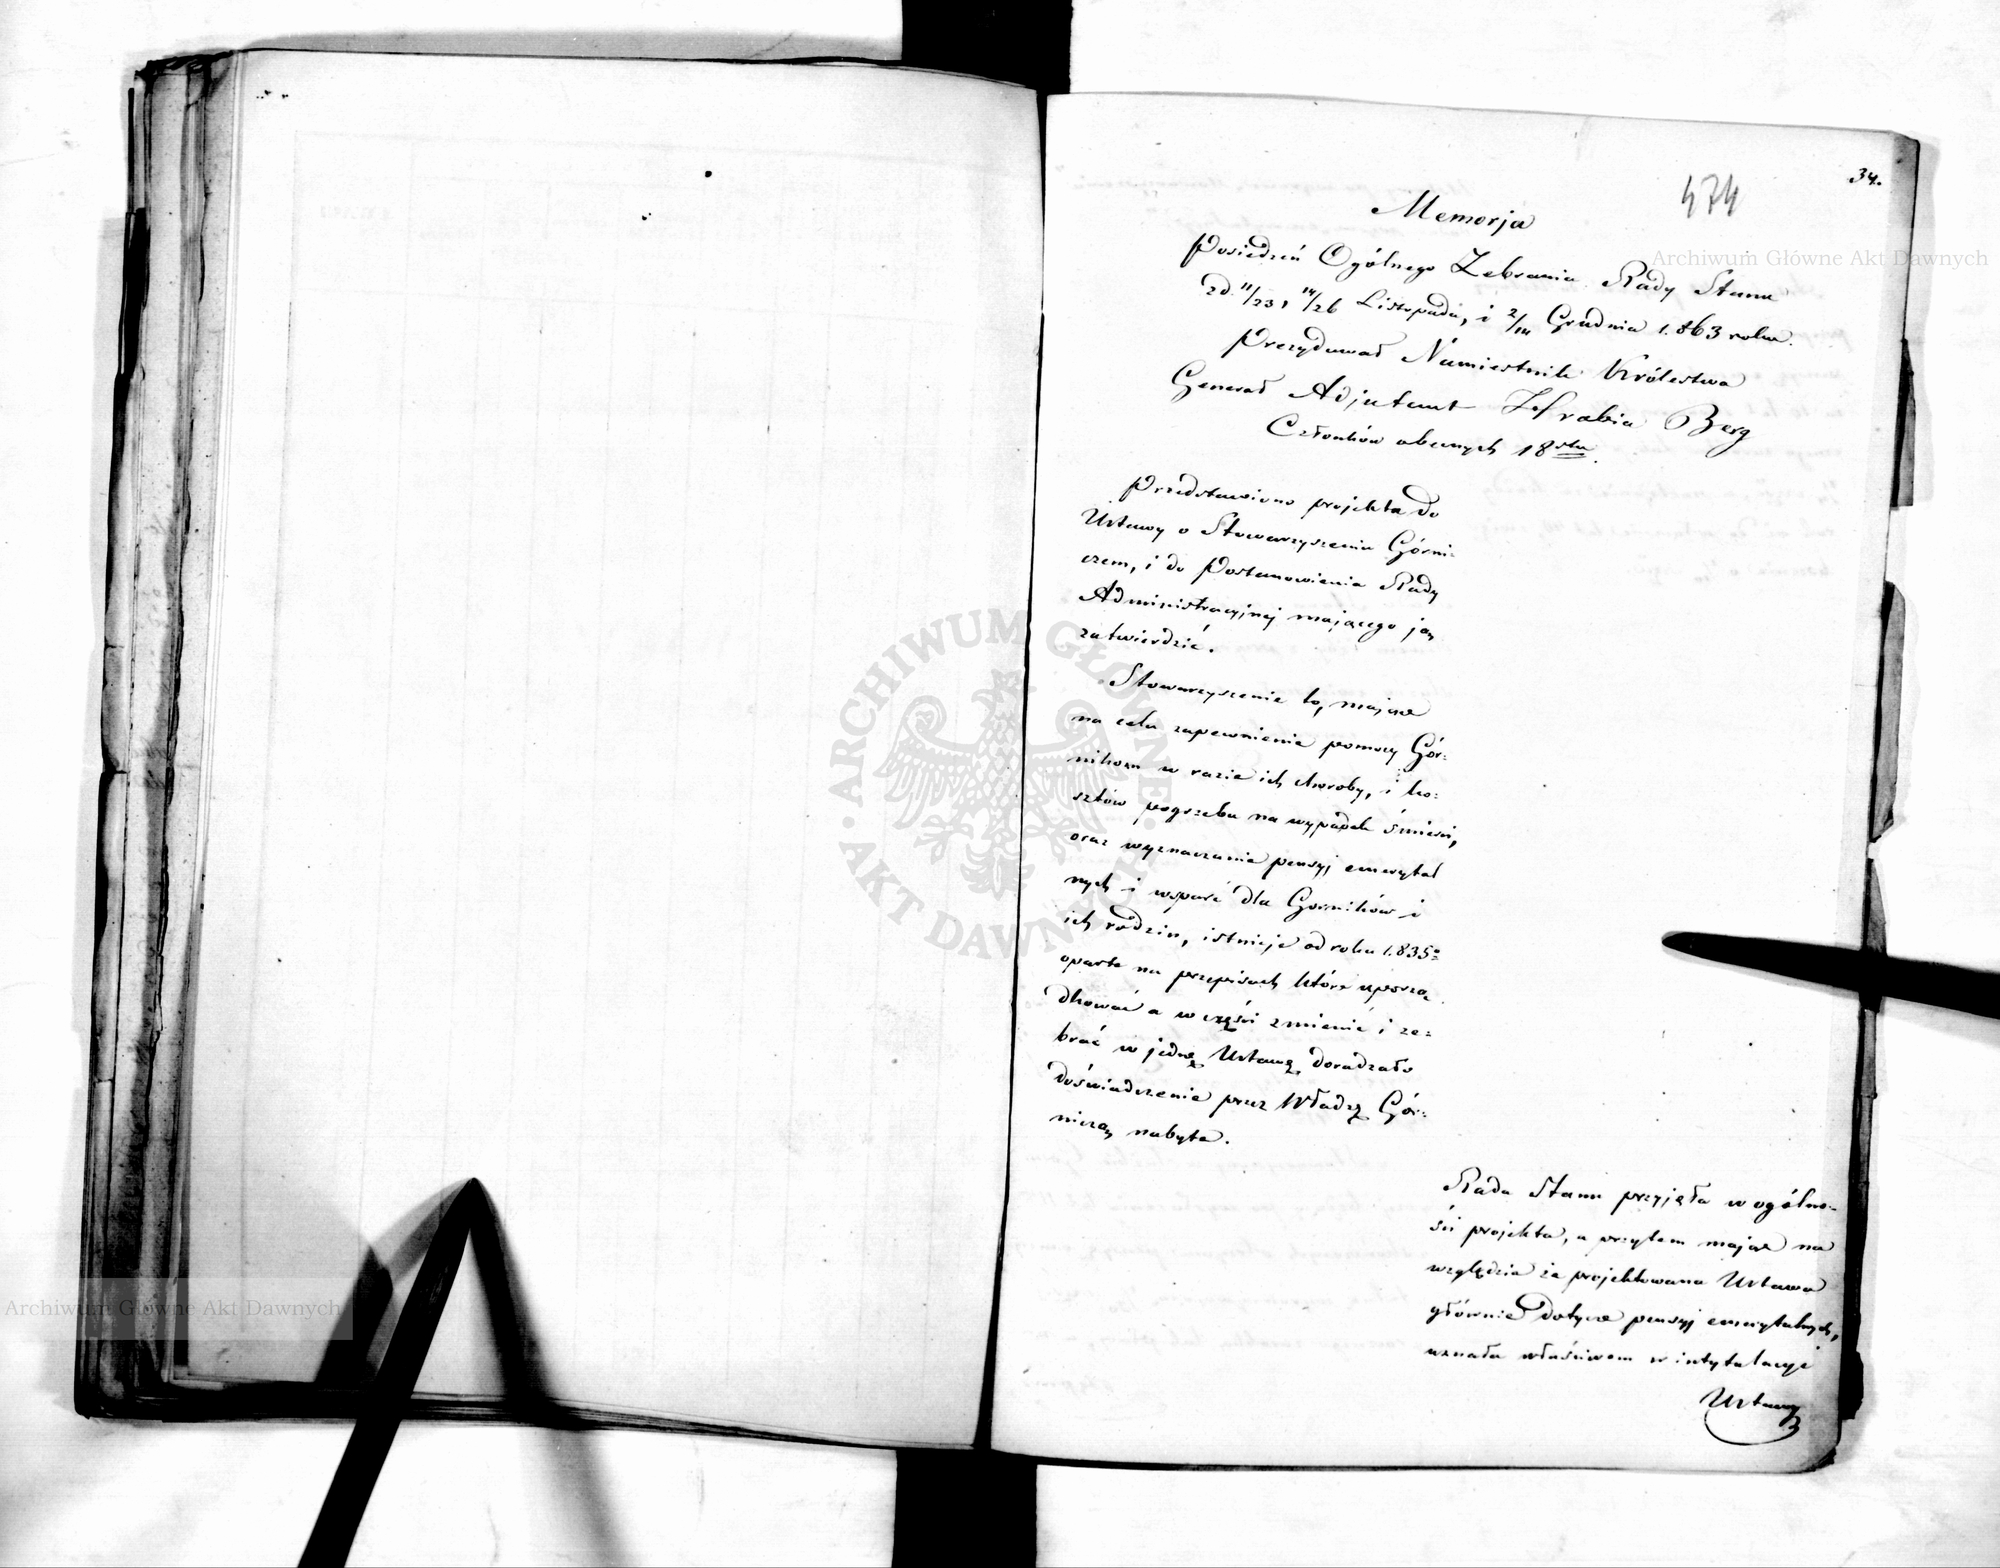 34.
474
Memorja
Posiedzeń Ogólnego Zebrania Rady Stanu
z d. 11/23, 14/26 Listopada, i 2/14 Grudnia 1.863 roku.
Prezydował Namiestnik Królestwa
Generał Adjutant Hrabia Berg
Członków obecnych 18stu.
Przedstawiono projekta do
Ustawy o Stowarzyszeniu Górni=
czem, i do Postanowienia Rady
Administracyjnej mającego ją
zatwierdzić.
Stowarzyszenie to, mające
na celu zapewnienie pomocy Gór=
nikom w razie ich choroby, i ko=
sztów pogrzebu na wypadek śmierci,
oraz wyznaczanie pensyj emerytal
nych i wsparć dla Gorników i
ich rodzin, istnieje od roku 1.835o
oparte na przepisach które uporzą
dkować a w części zmienić i ze=
brać w jednę Ustawę, doradzało
doświadczenie przez Władzę Gór=
niczą nabyte.
Rada Stanu przyjęła w ogólno=
ści projekta, a przytem mając na
względzie że projektowana Ustawa
głównie dotyczy pensyj emerytalnych,
uznała właściwem w intytulacyi
Ustawy
ARCHIWUM GŁÓWNE AKT DAWNYCH
Archiwum Główne Akt Dawnych
Archiwum Główne Akt Dawnych